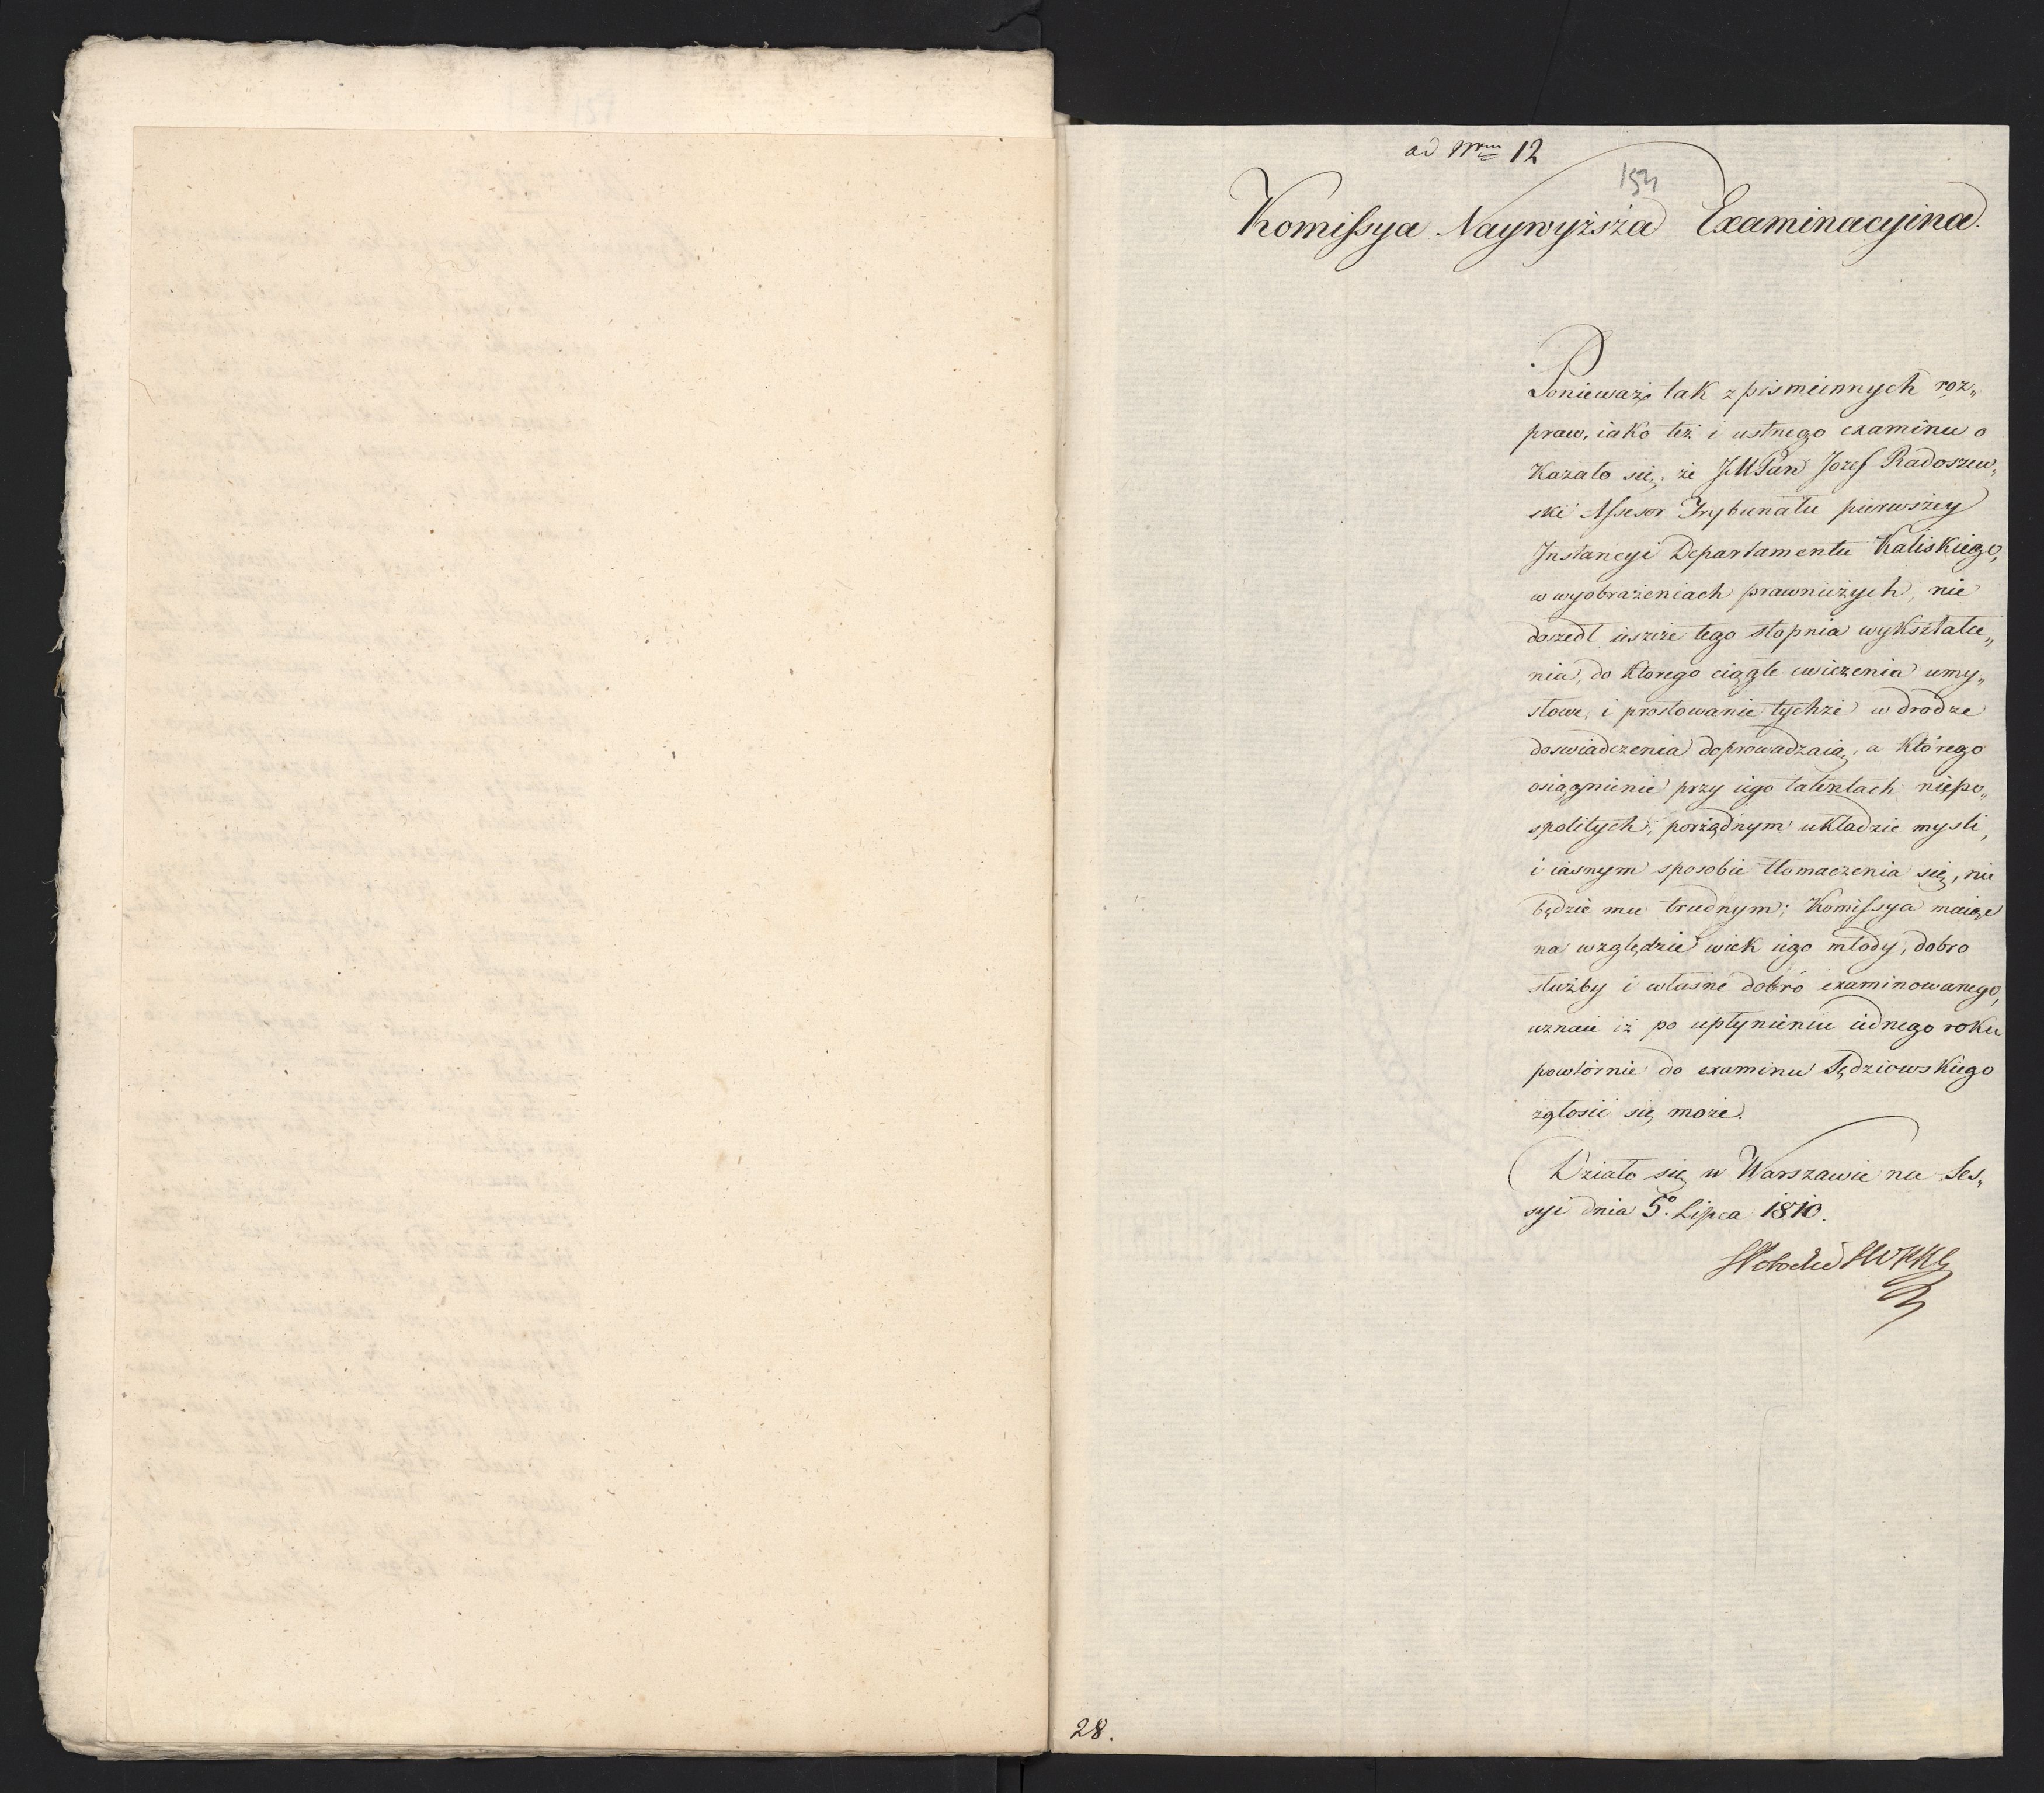 ad Nrm 12
Komissya Naywyższa Examinacyina.
Ponieważ tak z pismiennych roz„
praw, iako też i ustnego examinu o
kazało się, że JMPan Jozef Radoszew„
ski Assesor Trybunału pierwszey
Instancyi Departamentu Kaliskiego,
w wyobrażeniach prawniczych, nie
doszedł ieszcze tego stopnia wykształce„
nia, do ktorego ciągłe cwiczenia umy„
słowe, i prostowanie tychże w drodze
doswiadczenia doprowadzaią, a którego
osiągnienie przy iego talentach niepo„
spolitych, porządnym układzie mysli,
i iasnym sposobie tłomaczenia się, nie
będzie mu trudnym; Komissya maiąc
na względzie wiek iego młody, dobro
służby i własne dobro examinowanego,
uznaie iż po upłynieniu iednego roku
powtórnie do examinu Sędziowskiego
zgłosić się może.
Działo się w Warszawie na Ses„
syi dnia 5º. Lipca 1810.
28.